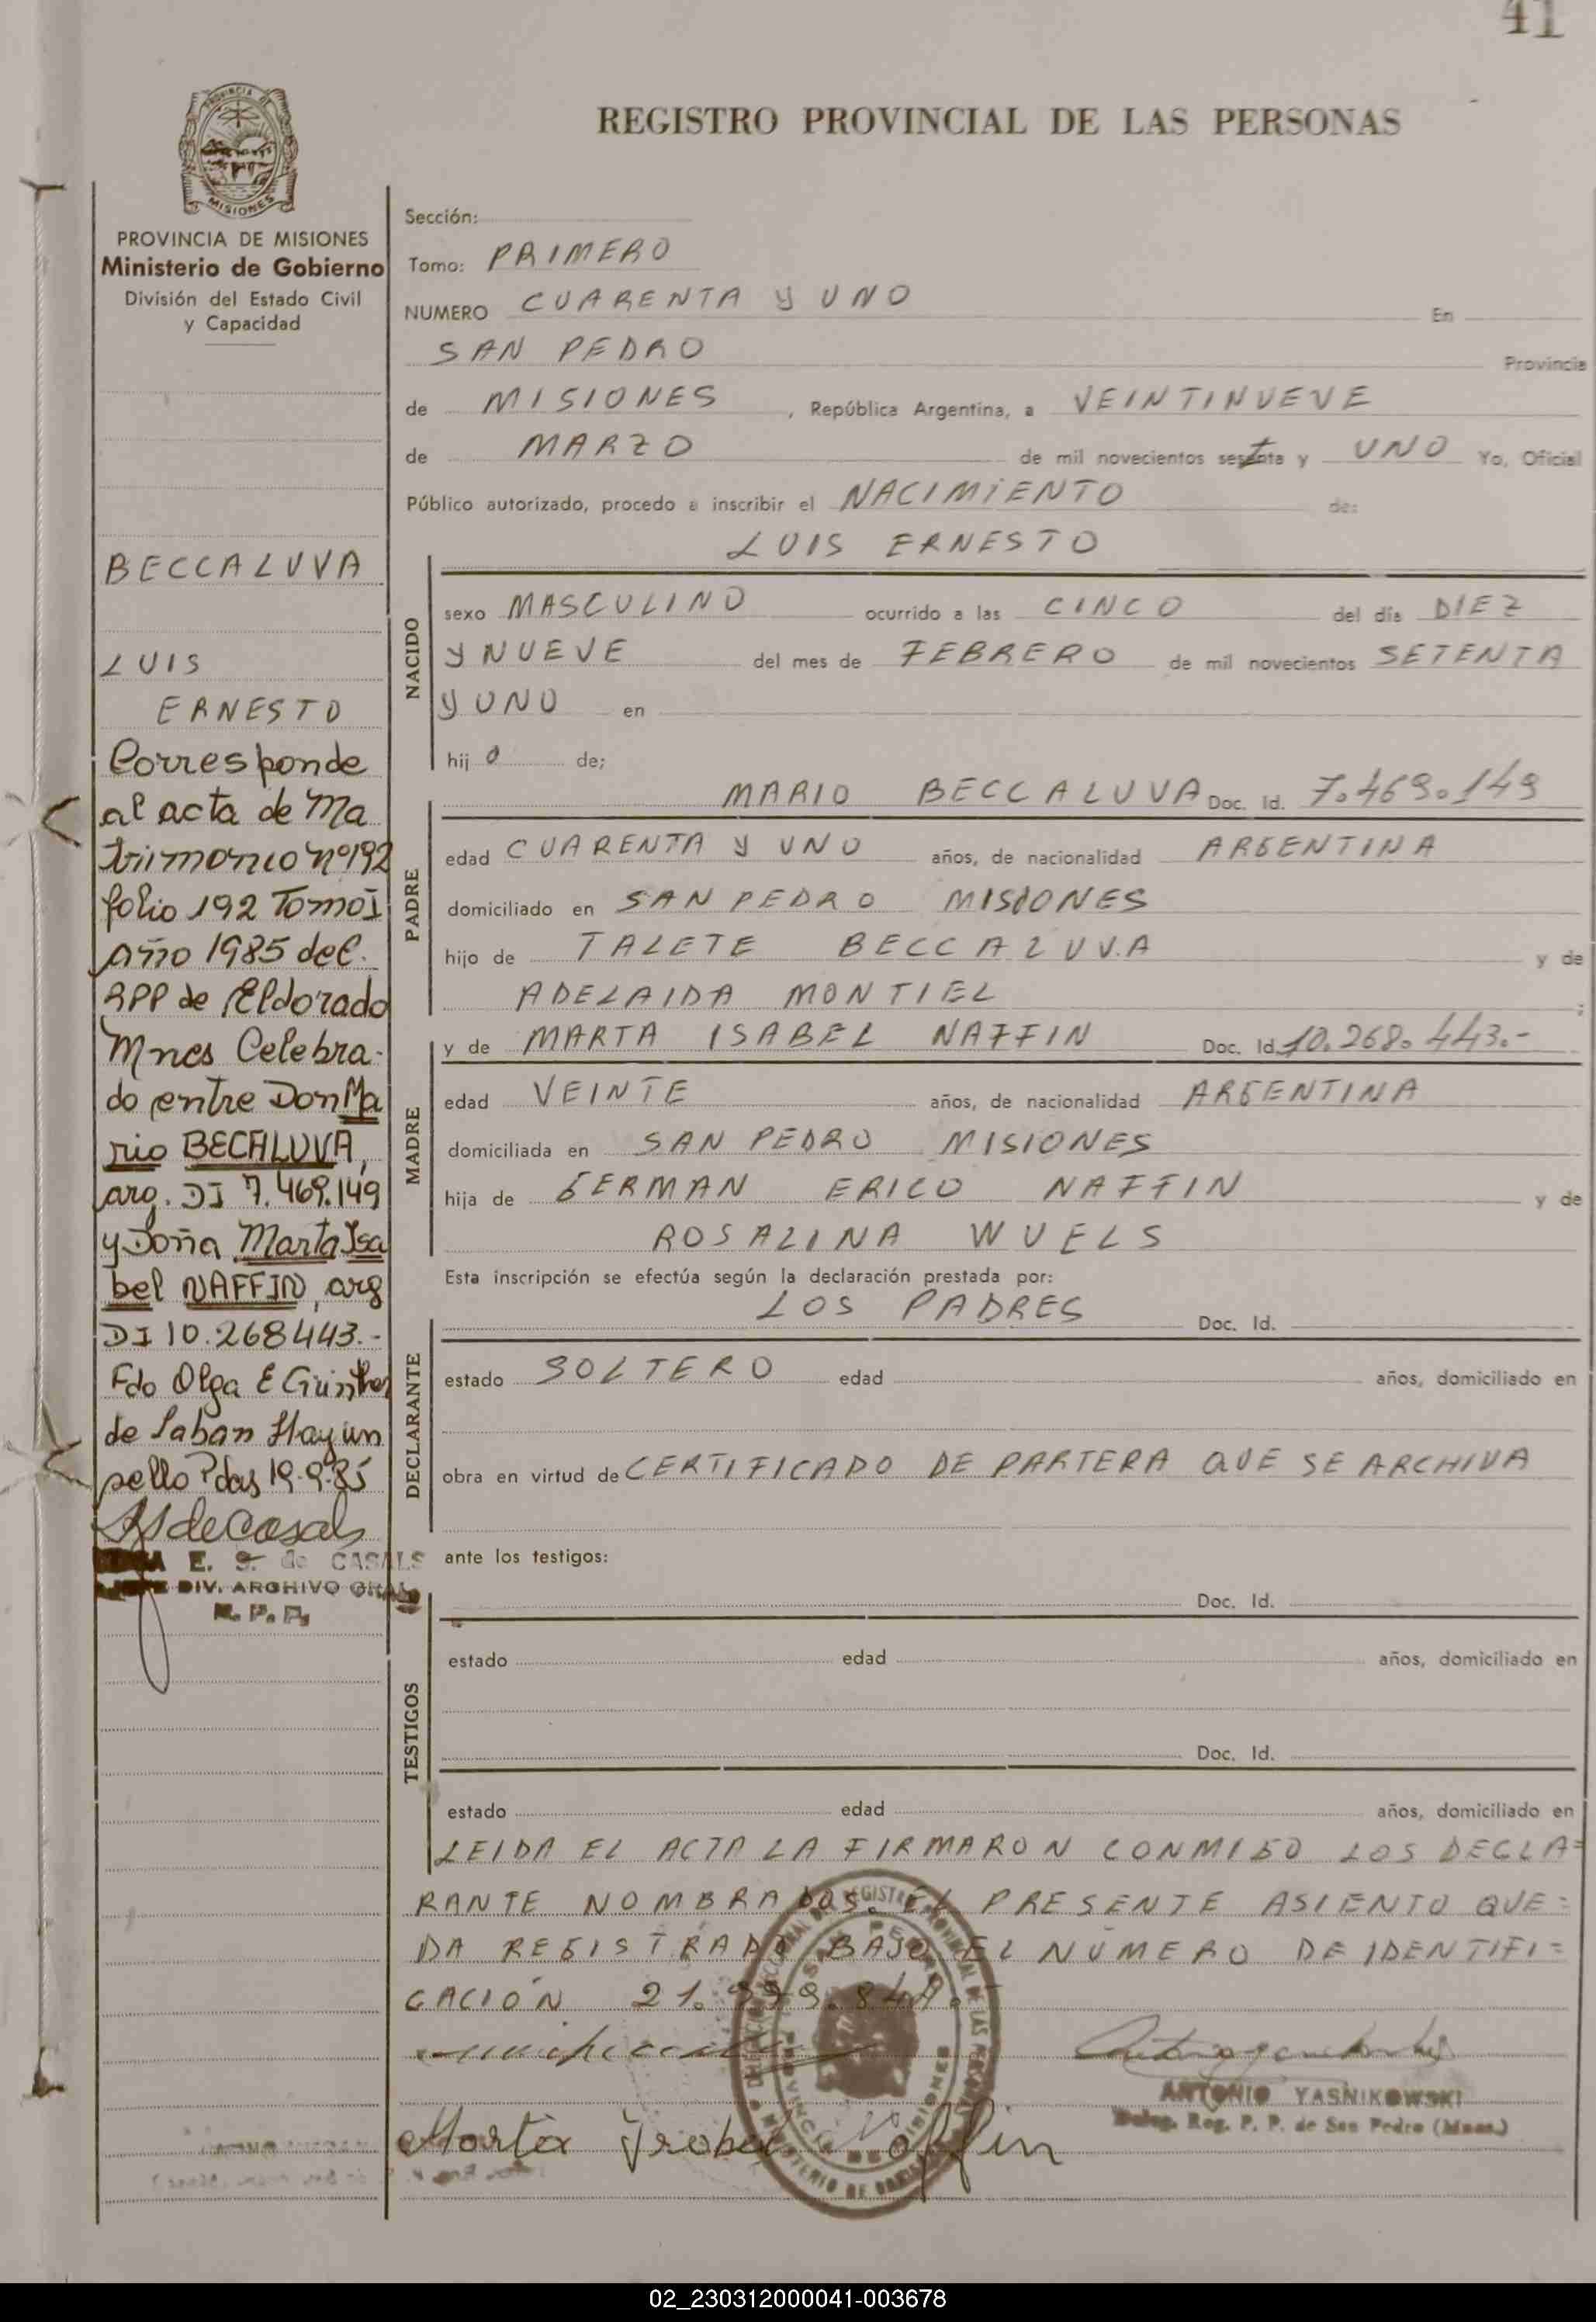 41
PROVINCIA DE
MISIONES
PROVINCIA DE MISIONES
Ministerio de Gobierno
División del Estado Civil
y Capacidad
BECCALUVA
LUIS
ERNESTO
Corresponde
al acta de Ma
trimonio nº192
folio 192 Tomo I
Año 1985 del.
RPP de Eldorado
Mnes Celebra-
do entre Don Ma
rio BECALUVA,
arg. DI 7.469.149
y Doña Marta Isa
bel NAFFIN, arg
DI 10.268443.-
Fdo Olga E Günther
de Laban Hay un
sello Pdas 19-9-85
E. S. de CASALS
DIV. ARCHIVO GRAL
R. P. P.
REGISTRO PROVINCIAL DE LAS PERSONAS
Sección:
Tomo: PRIMERO
NUMERO CUARENTA Y UNO En
SAN PEDRO Provincia
de MISIONES, República Argentina, a VEINTINUEVE
de MARZO de mil novecientos setenta y UNO Yo, Oficial
Público autorizado, procedo a inscribir el NACIMIENTO de:
LUIS ERNESTO
NACIDO
sexo MASCULINO ocurrido a las CINCO del día DIEZ
Y NUEVE del mes de FEBRERO de mil novecientos SETENTA
Y UNO en
hijo de;
MARIO BECCALUVA Doc. Id. 7.469.149
PADRE
edad CUARENTA Y UNO años, de nacionalidad ARGENTINA
domiciliado en SAN PEDRO MISIONES
hijo de TALETE BECCALUVA y de
ADELAIDA MONTIEL ;
y de MARTA ISABEL NAFFIN Doc. Id. 10.268.443.-
MADRE
edad VEINTE años, de nacionalidad ARGENTINA
domiciliada en SAN PEDRO MISIONES
hija de GERMAN ERICO NAFFIN y de
ROSALINA WUELS
Esta inscripción se efectúa según la declaración prestada por:
LOS PADRES Doc. Id.
DECLARANTE
estado SOLTERO edad años, domiciliado en
obra en virtud de CERTIFICADO DE PARTERA QUE SE ARCHIVA
ante los testigos:
Doc. Id.
TESTIGOS
estado edad años, domiciliado en
Doc. Id.
estado edad años, domiciliado en
LEIDA EL ACTA LA FIRMARON CONMIGO LOS DECLA=
RANTE NOMBRADOS. EL PRESENTE ASIENTO QUE=
DA REGISTRADO BAJO EL NÚMERO DE IDENTIFI=
CACIÓN 21.
ANTONIO YASNIKOWSKI
Deleg. Reg. P. P. de San Pedro (Mnes.)
Marta Isabel Naffin
02_230312000041-003678